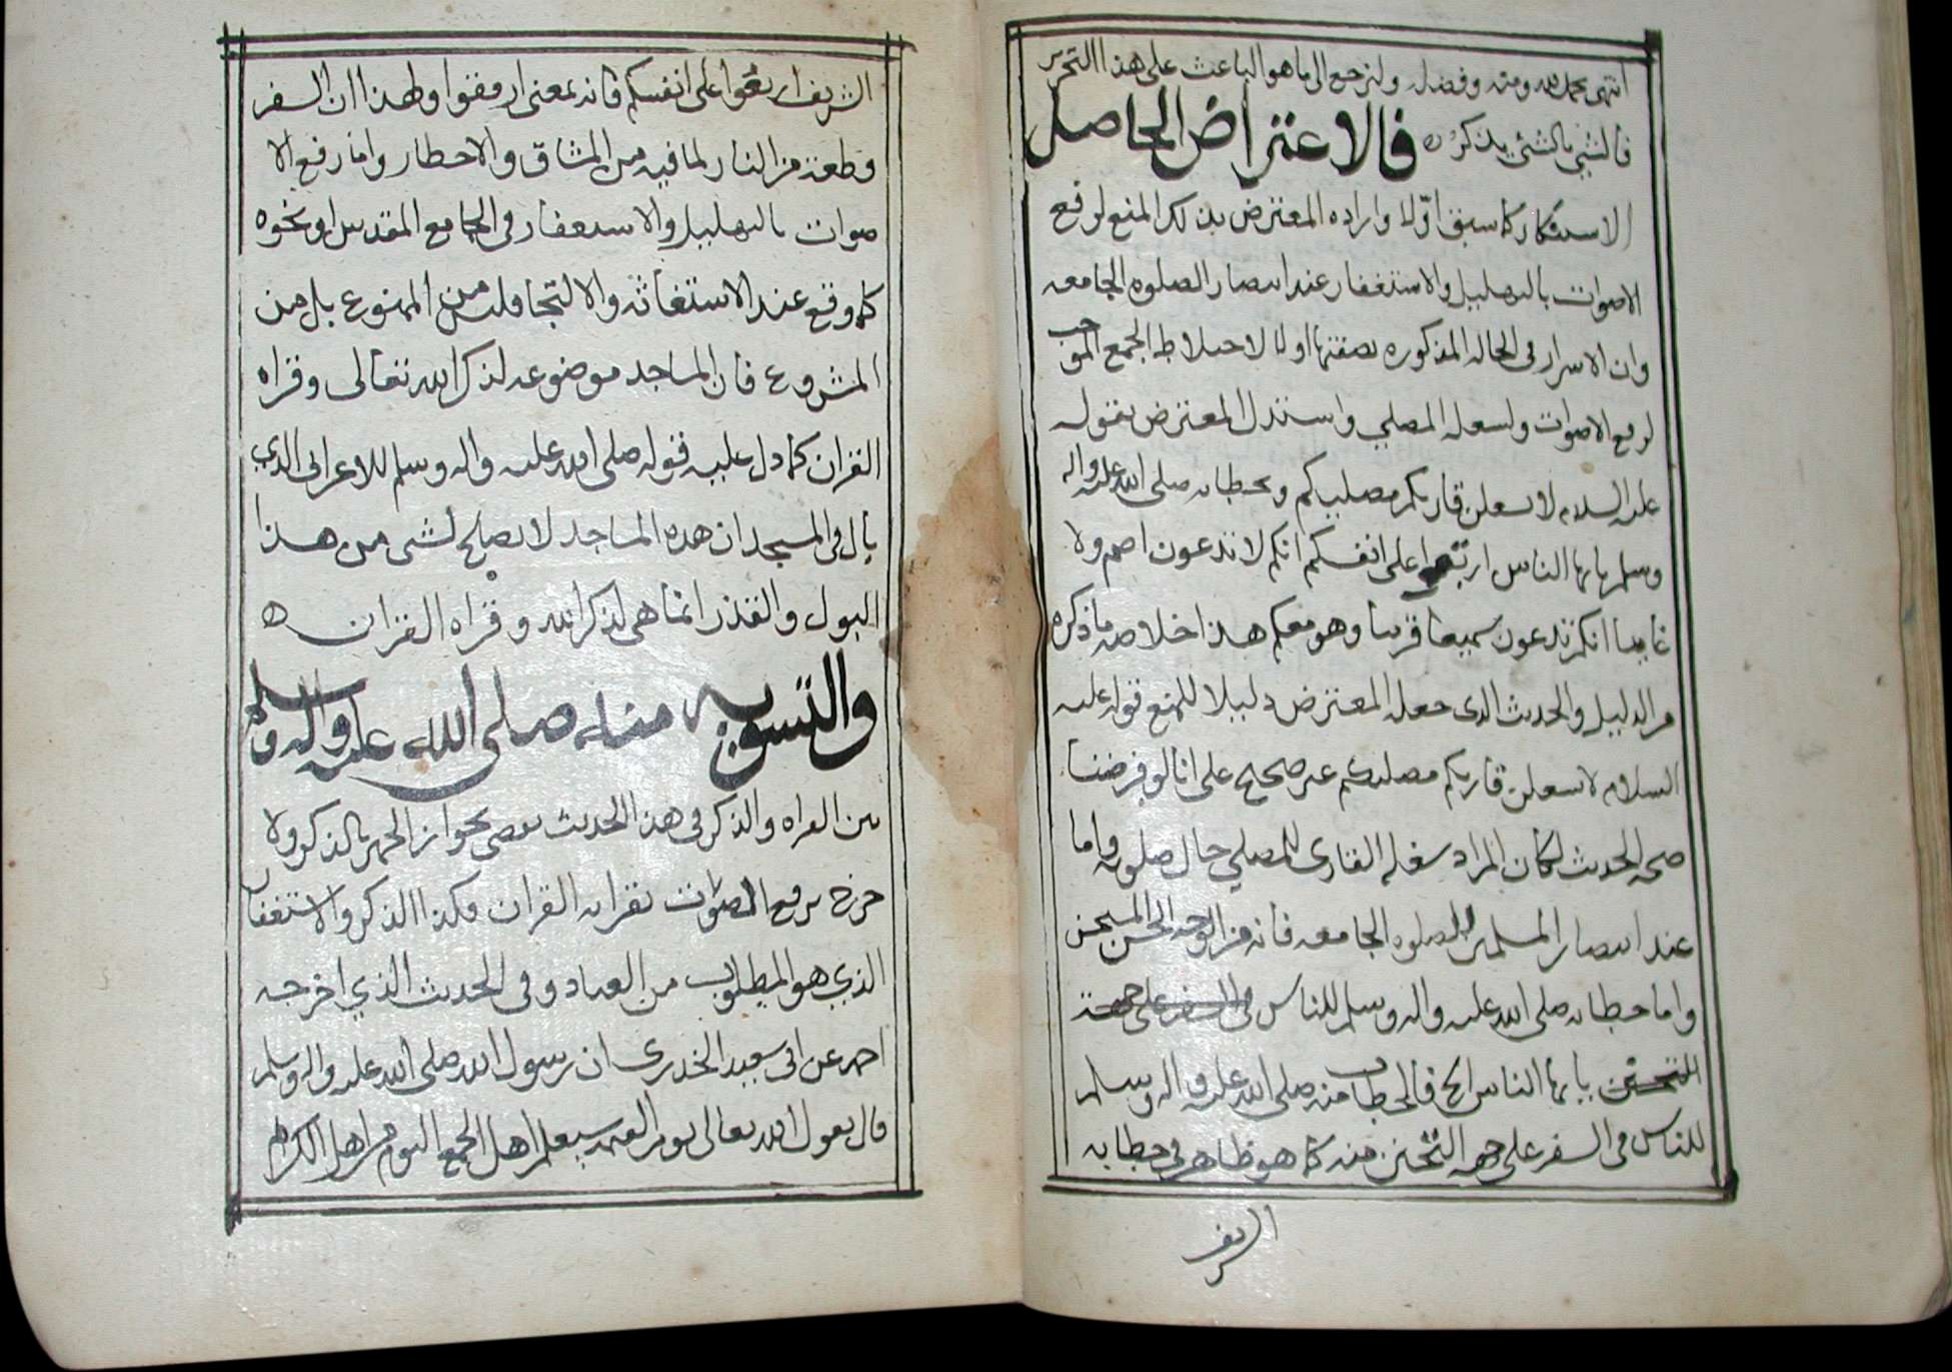 انتهى بحمد الله ومنه وفضله ولنرجع الى ما هو الباعث على هذا التحرير
فالشي بالشي يذكر ه فالاعتراض الحاصل
الاستنكار كما سبق اولا واراده المعترض بذلك المنع لرفع
الاصوات بالتهليل والاستغفار عند انتصار الصلوه الجامعه
وان الاسرار في الحاله المذكوره بصفتها اولا لاختلاط الجمع الموجب
لرفع الاصوات ولشغله المصلي واستدل المعترض بقوله
عليه السلام لا يشغلن قاريكم مصليكم وبخطابه صلى الله عليه واله
وسلم يايها الناس اربعوا على انفسكم انكم لا تدعون اصم ولا
غايبا انكم تدعون سميعا قريبا وهو معكم هذا خلاصه ما ذكره
من الدليل والحديث الذي جعله المعترض دليلا للمنع قوله عليه
السلام لا يشغلن قاريكم مصليكم غير صحيح على انا لو فرضنا
صحه الحديث لكان المراد شغله القاري للمصلي حال صلوته واما
عند انتصار المسلمين للصلوه الجامعه فانه من الوجه الحسن المستحسن
واما خطابه صلى الله عليه واله وسلم للناس في السفر على جهة
التحنن يايها الناس الخ فالخطاب منه صلى الله عليه واله وسلم
للناس في السفر على جهه التحنن منه كما هو ظاهر في خطابه
الشريف
الشريف اربعوا على انفسكم فانه بمعنى ارفقوا ولهذا ان السفر
قطعه من النار لما فيه من المشاق والاخطار واما رفع الا
صوات بالتهليل والاستغفار في الجامع المقدس او نحوه
كما وقع عند الاستغاثه والالتجا فليس من الممنوع بل من
المشروع فان المساجد موضوعه لذكر الله تعالى وقراه
القران كما دل عليه قوله صلى الله عليه واله وسلم للاعرابي الذي
بال في المسجد ان هذه المساجد لا تصلح لشي من هذا
البول والقذر انما هي لذكر الله وقراه القران ه
والتسويه منه صلى الله عليه واله وسلم
بين القراه والذكر في هذا الحديث يقضي بجواز الجهر بالذكر ولا
حرج برفع الصوت بقراه القران فكذا الذكر والاستغفار
الذي هو المطلوب من العباد وفي الحديث الذي اخرجه
احمد عن ابي سعيد الخدري ان رسول الله صلى الله عليه واله وسلم
قال يقول الله تعالى يوم القيمه سيعلم اهل الجمع اليوم من اهل الكرم